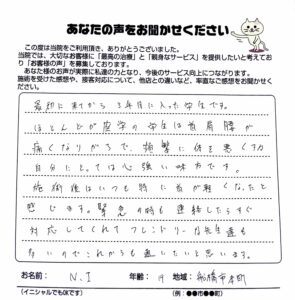 あなたの声をお聞かせください
この度は当院をご利用頂き、ありがとうございました。
当院では、大切なお客様に「最高の治療」と「親身なサービス」を提供したいと考えて
おり「お客様の声」を募集しております。
あなた様のお声が実際に私達の力となり、今後のサービス向上につながります。
施術を受けた感想や、接客対応について、他店との違いなど、率直なご感想をお聞かせく
ださい。
最初に来てから3年目に入った学生です。
ほとんどが座学の学生は首肩腰が
痛くなりがちで、頻繁に体を悪くする
自分にとっては心強い味方です。
施術後はいつも特に首が軽くなったと
感じます。緊急の時も連絡したらすぐ
対応してくれてフレンドリーな先生達も
いのでこれからも通いたいと思います。
お名前: N.I 年齢: 19 地域: 船橋市本町
(イニシャルでもOKです) (例:●●市●●町)